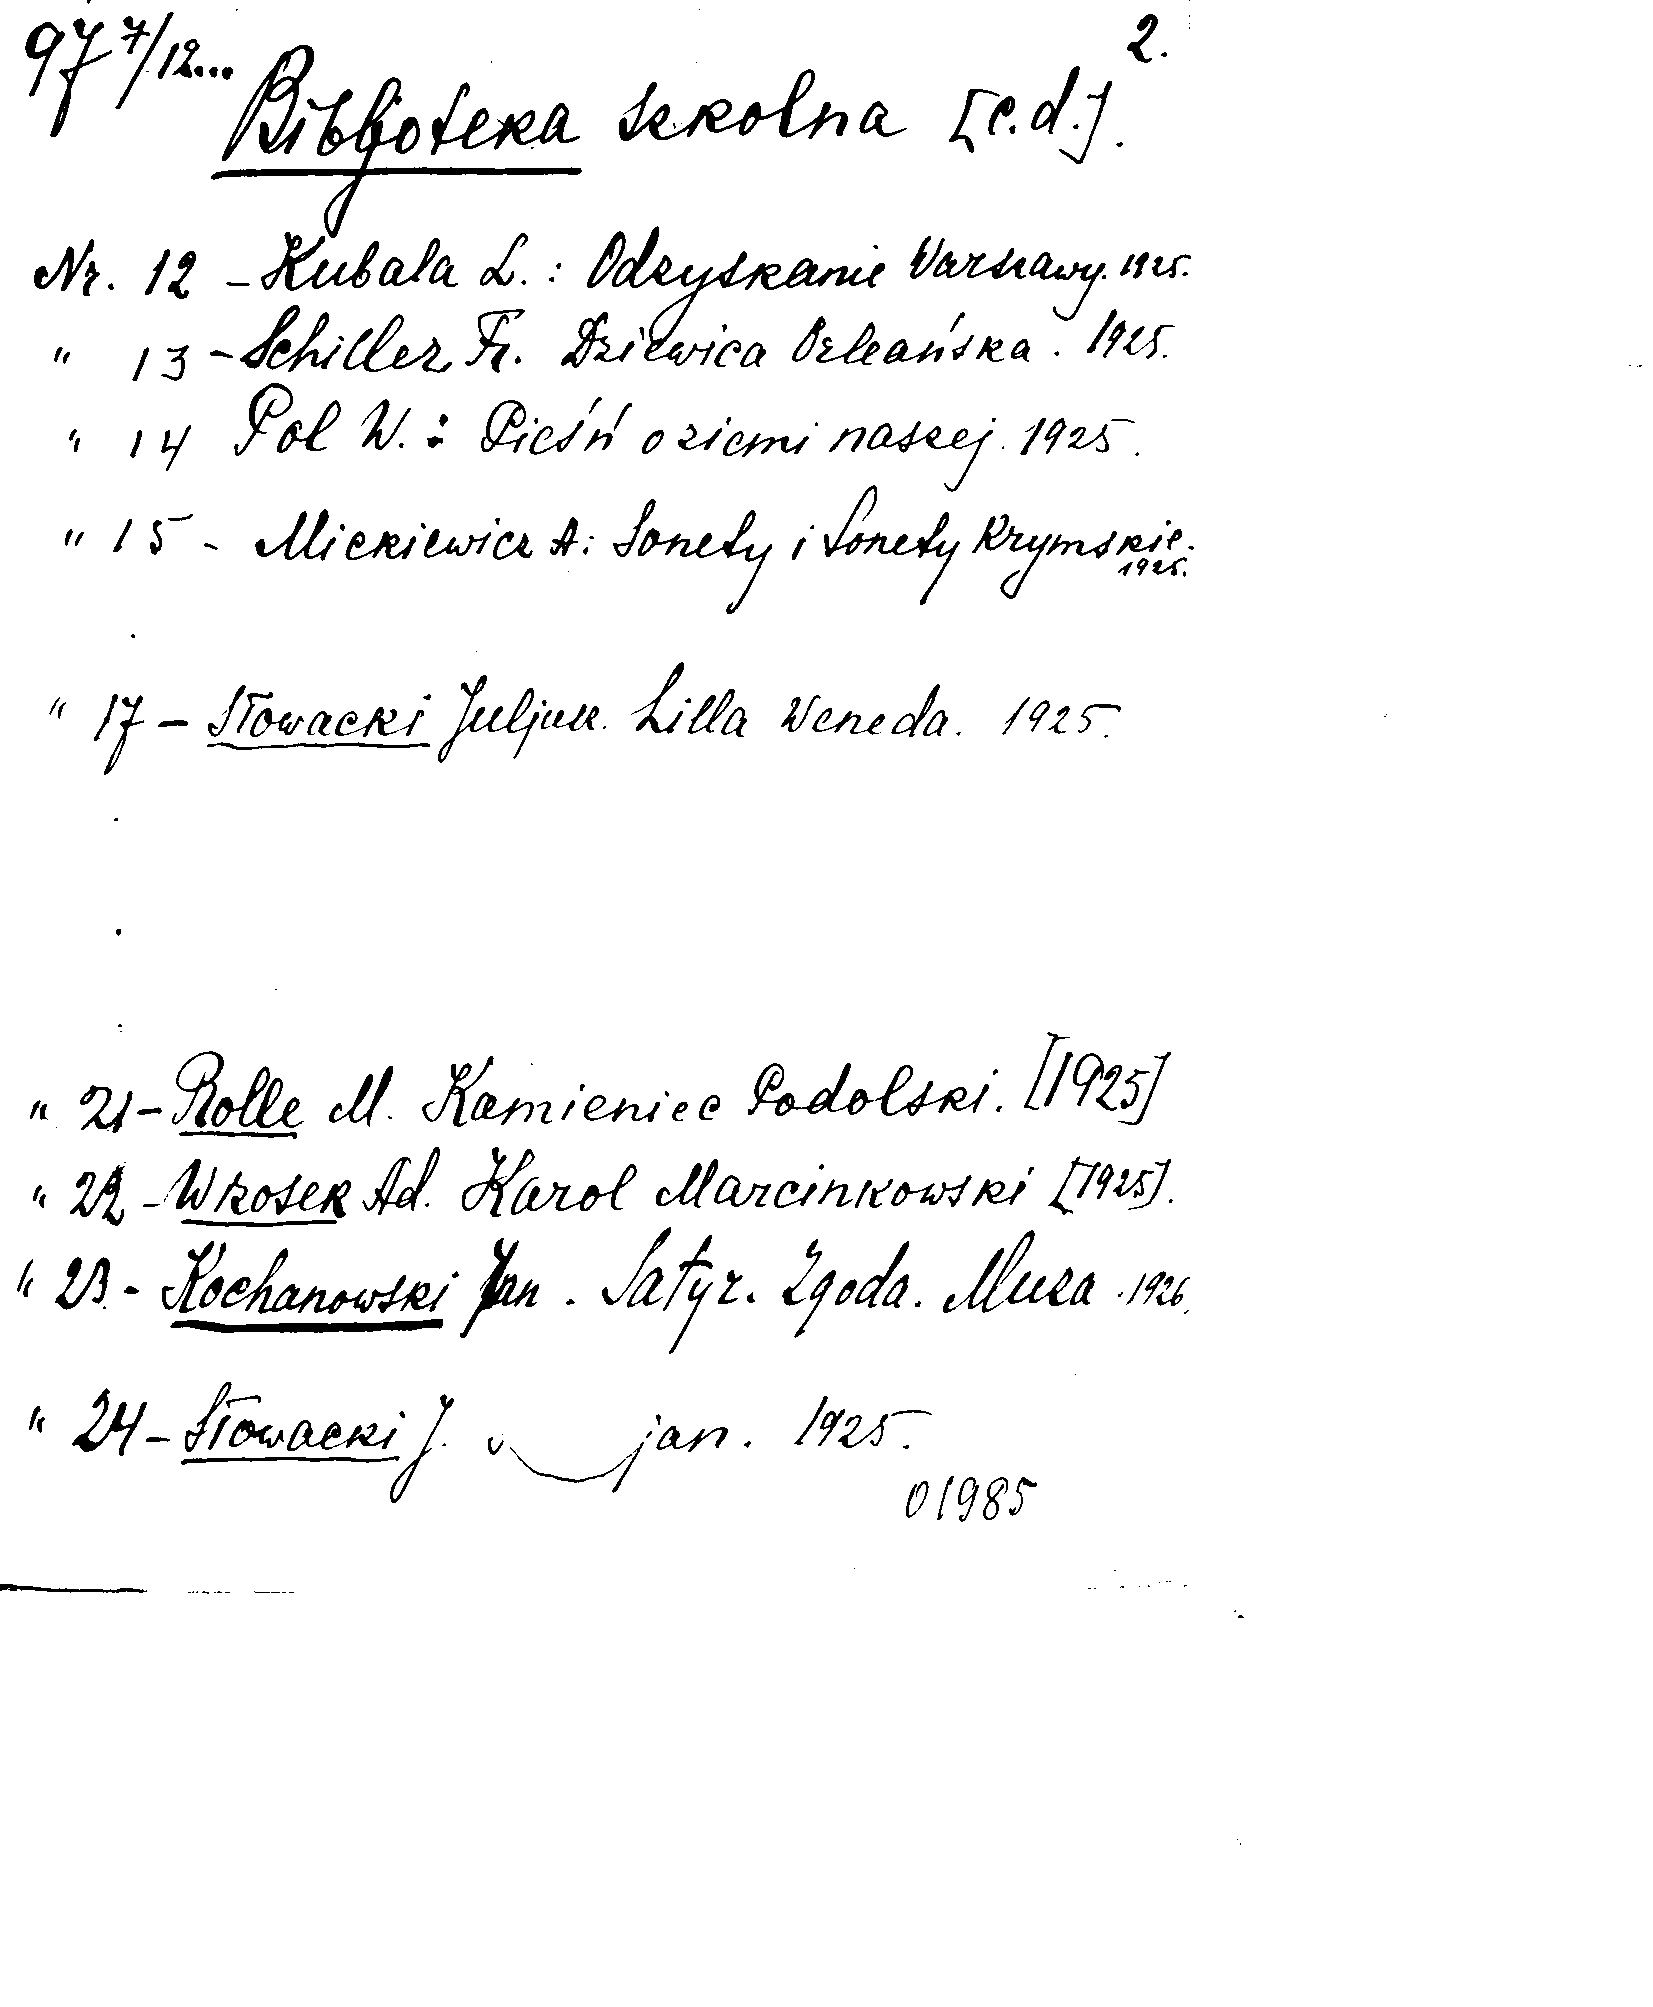 97 7/12... 2.
Bibljoteka szkolna [c.d.].
Nr. 12 – Kubala L. : Odzyskanie Warszawy. 1925.
" 13 – Schiller Fr. Dziewica Orleańska. 1925.
" 14 Pol W. : Pieśń o ziemi naszej. 1925.
" 15 - Mickiewicz A: Sonety i Sonety Krymskie.
1925.
" 17 – Słowacki Juljusz. Lilla Weneda. 1925.
" 21 – Rolle M. Kamieniec Podolski. [1925]
" 22 – Wrzosek Ad. Karol Marcinkowski [1925].
" 23. - Kochanowski Jan. Satyr. Zgoda. Muza. 1926.
" 24 – Słowacki J. jan. 1925.
01985